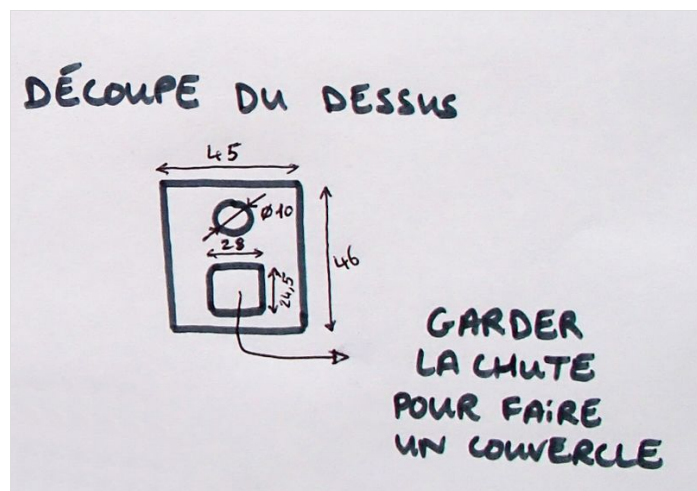 DÉCOUPE DU DESSUS
45
Ø10
28
46
24,5
GARDER
LA CHUTE
POUR FAIRE
UN COUVERCLE